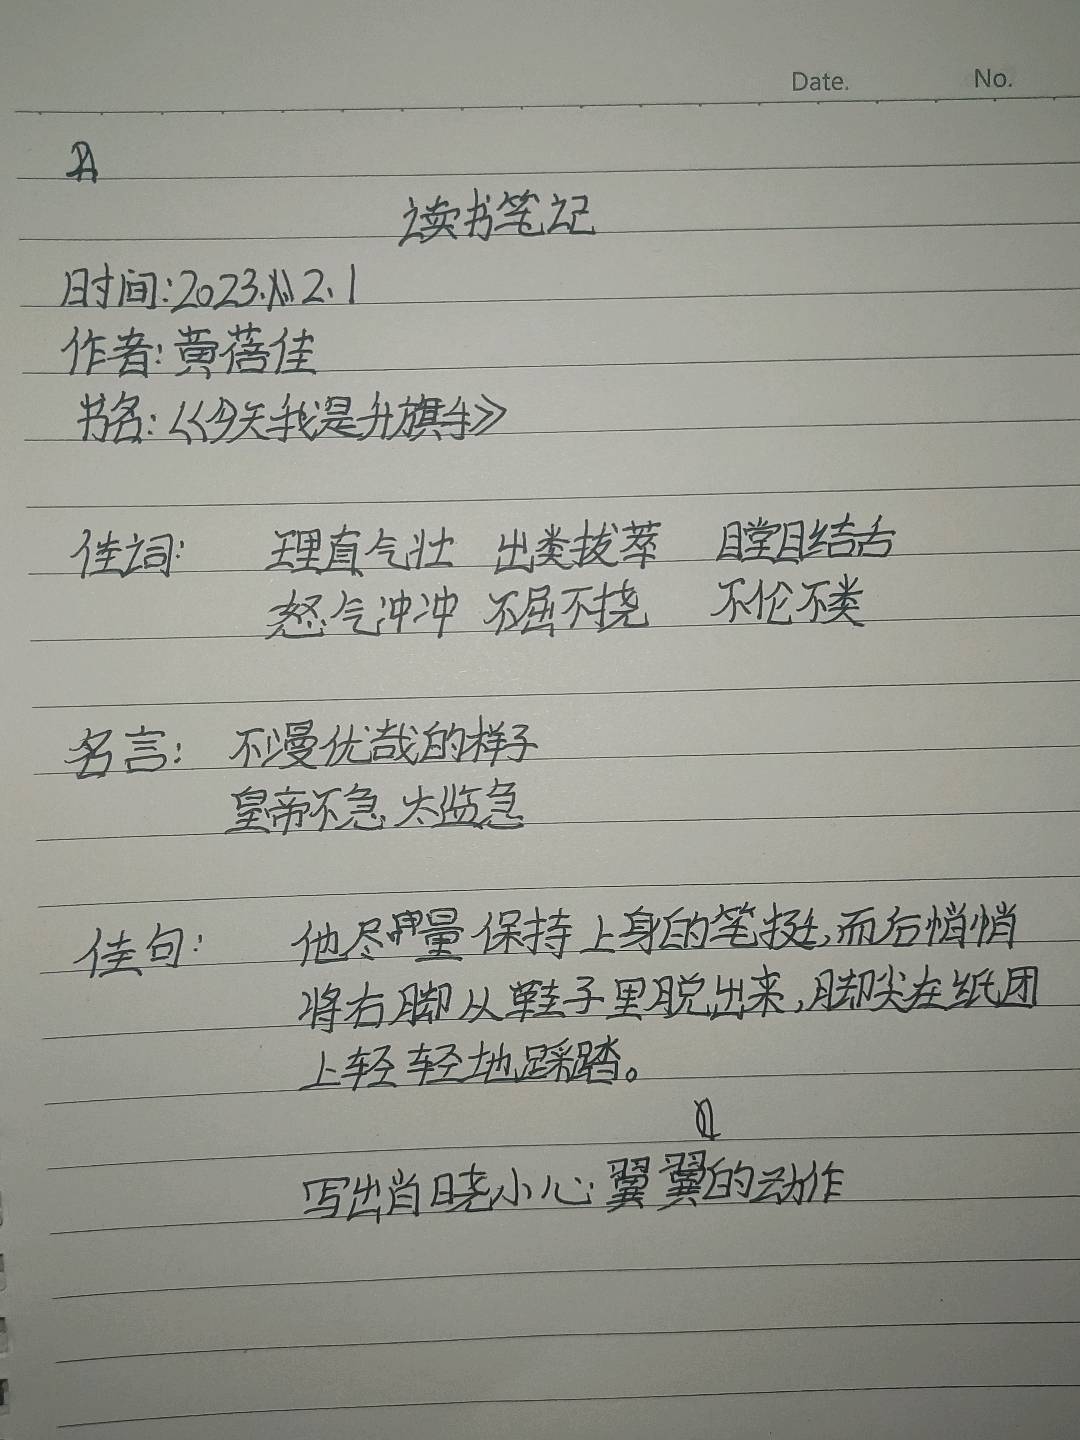 Date. No.
A
读书笔记
时间:2023.12.1
作者:黄蓓佳
书名:《今天我是升旗手》
佳词: 理直气壮 出类拔萃 瞠目结舌
怒气冲冲 不屈不挠 不伦不类
名言: 不慢优哉的样子
皇帝不急,太监急
佳句: 他尽量保持上身的笔挺,而后悄悄
将右脚从鞋子里脱出来,脚尖在纸团
上轻轻地踩踏。
写出肖晓小心翼翼的动作